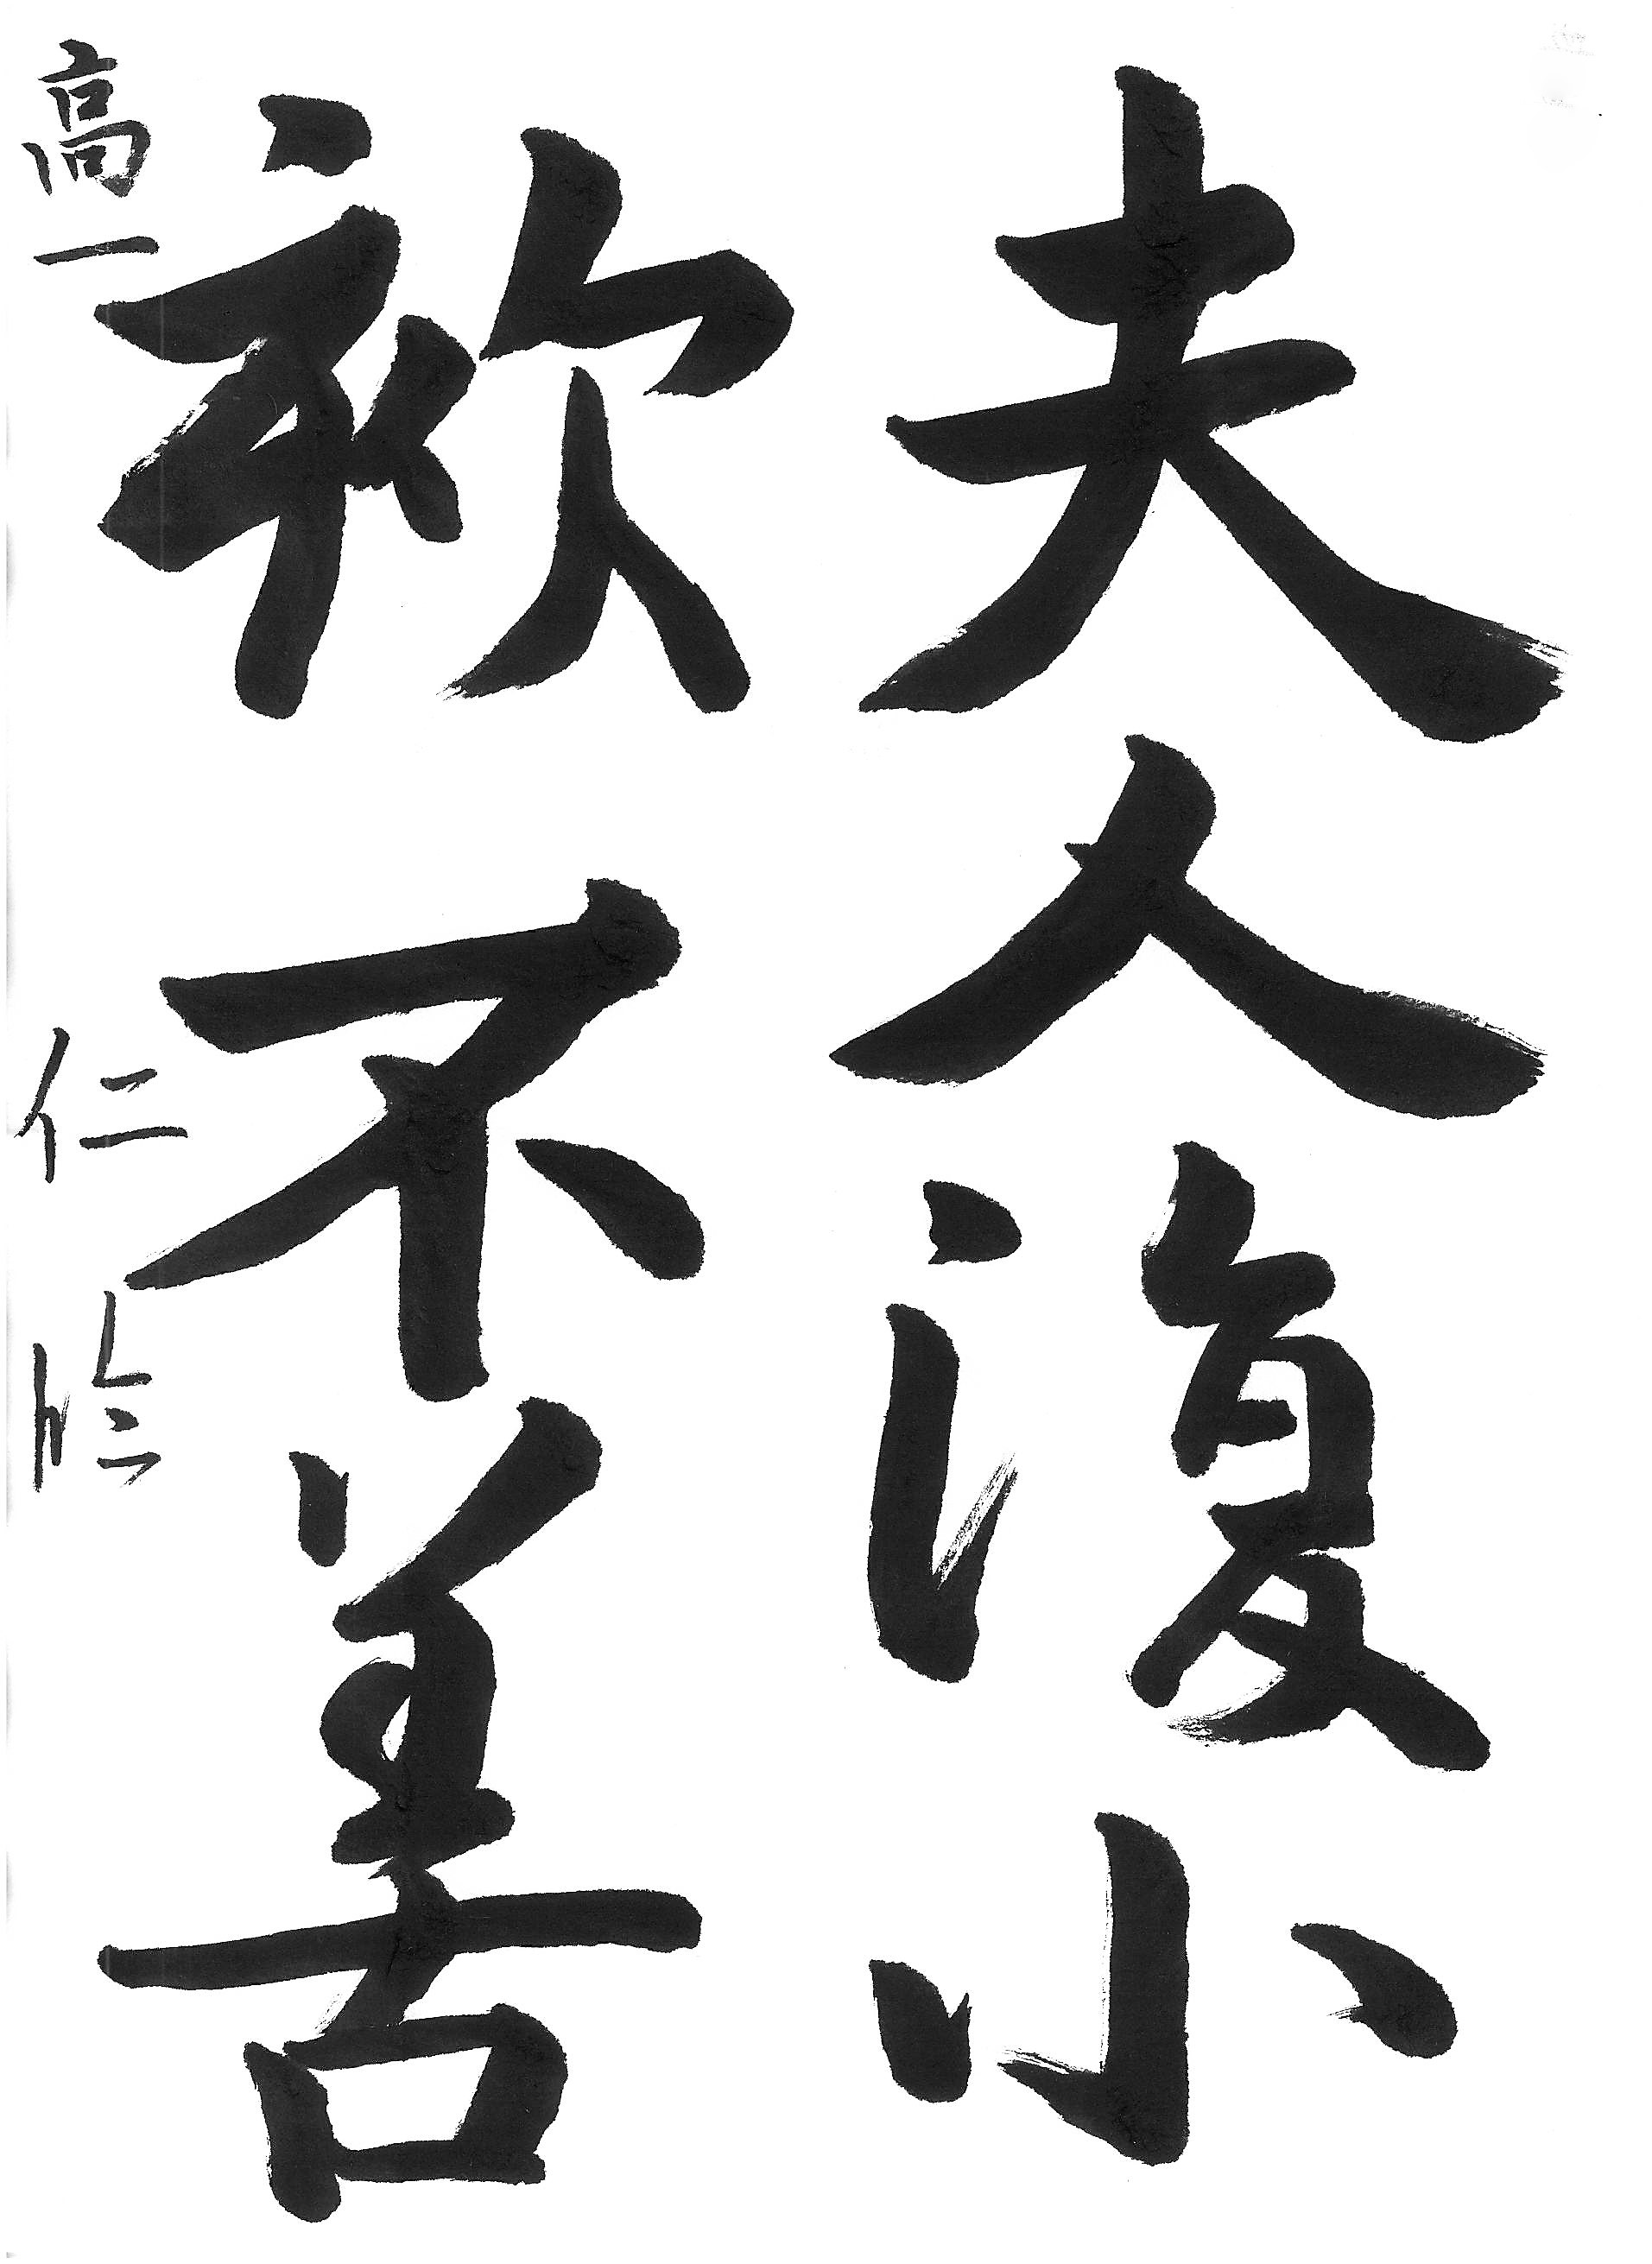 夫人復小
欬不善
高一 仁